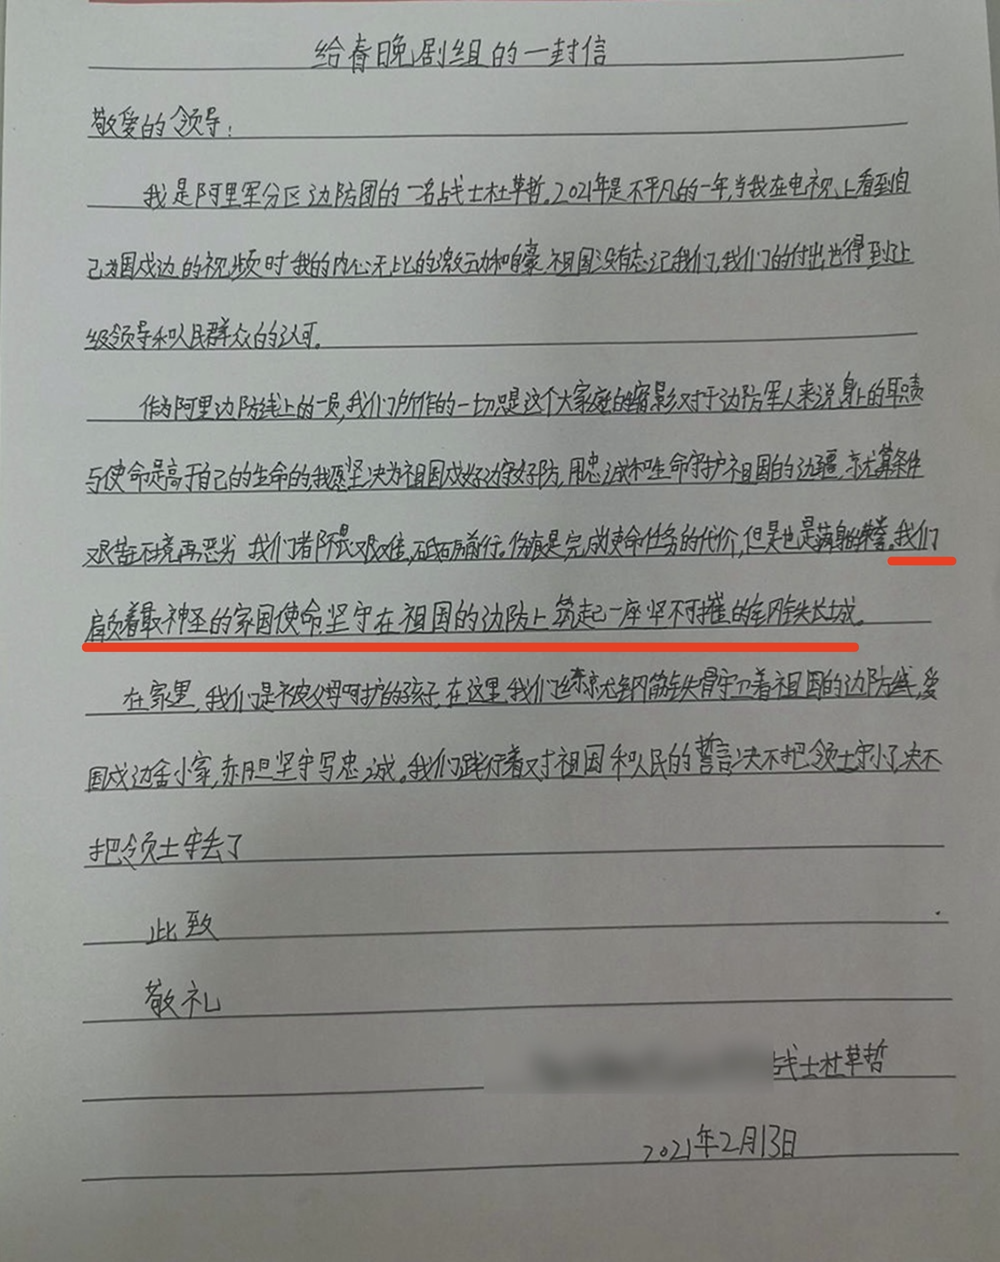 给春晚剧组的一封信
敬爱的领导:
我是阿里军分区边防团的一名战士杜草哲。2021年是不平凡的一年,当我在电视上看到自
己为国戍边的视频时我的内心无上比的激动和自豪 祖国没有忘记我们,我们的付出也得到了上
级领导和人民群众的认可。
作为阿里边防线上的一员,我们所作的一切只是这个大家庭的缩影对于边防军人来说身上的职责
与使命是高于自己的生命的,我愿坚决为祖国戍好边守好防,用忠诚和生命守护祖国的边疆,就算条件
艰苦环境再恶劣 我们都不畏艰难,砥砺前行。伤痕是完成使命任务的代价,但是也是满身的荣誉。我们
肩负着最神圣的家国使命坚守在祖国的边防上筑起一座坚不可摧的钢铁长城。
在家里,我们是被父母呵护的孩子,在这里,我们丝亲尤钢筋铁骨守卫着祖国的边防线,爱
国戍边舍小家,赤胆坚守写忠诚。我们践行着对祖国和人民的誓言决不把领土守小了,决不
把领土守丢了
此致
敬礼
战士杜草哲
2021年2月13日